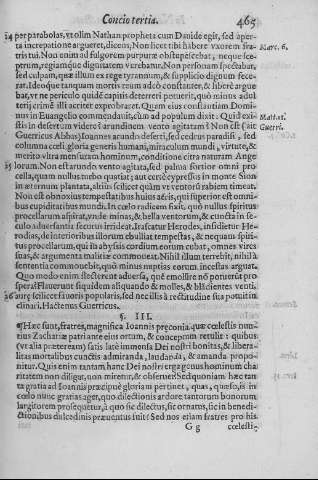 Concio tertia. 465
34 per parabolas, vt olim Nathan propheta cum Dauide egit, sed aper-
ta increpatione argueret, dicens, Non licet tibi habere vxorem fra- Marc. 6.
tris tui. Non enim ad fulgorem purpuræ obstupescebat, neque sce-
ptrum, regiamque dignitatem verebatur. Non personam spectabat,
sed culpam, quæ illum ex rege tyrannum, & supplicio dignum fece-
rat. Ideoque tantum mortis reum adeò constanter, & liberè argue
bat, vt ne periculo quidem capitis deterreri potuerit, quò minus adul
terij crimē illi acriter exprobraret. Quam eius constantiam Domi-
nus in Euangelio commendauit, cum ad populum dixit: Quid exi- Matt. 11.
stis in desertum videre? arundinem vento agitatam? Non est (ait Guerri.
Guerricus Abbas) Ioannes arundo deserti, sed cedrus paradisi, sed
columna cœli, gloria generis humani, miraculum mundi, virtute, &
merito vltra mensuram hominum, conditione citra naturam Ange
35 lorum. Non est arundo vento agitata, sed palma fortior omni pro-
cella, quam nullus mebo quatiat; aut certè cypressus in monte Sion
in æternum plantata, altius scilicet quàm vt ventorū rabiem timeat.
Non est obnoxius tempestatibus huius aëris, qui superior est omni-
bus cupiditatibus mundi. In cœlo radicem fixit, quò nullus spiritus
procellarum aspirat, vnde minas, & bella ventorum, & cuncta in se-
culo aduersantia securus irrideat. Irascatur Herodes, insidietur He-
rodias, de interioribus illorum ebulliat tempestas, & nequam spiri-
tus procellarum, qui in abyssis cordium eorum cubat, omnes vires
suas, & argumenta malitiæ commoueat. Nihil illum terrebit, nihil à
sententia commouebit, quò minus nuptias eorum incestas arguat.
Quo modo enim flecterent aduersa, què emollire nō poterant pro-
spera? Flauerunt siquidem aliquando & molles, & blādientes venti
36 auræ scilicet fauoris popularis, sed nec illis à rectitudine sua potuit in
clinari. Hactenus Guerricus.
§. III.
¶ Hæc sunt, fratres, magnifica Ioannis præconia, quæ cœlestis nun-
tius Zachariæ patri ante eius ortum, & conceptum retulit: quibus
(vt alia præteream) satis latè immensa Dei nostri bonitas, & libera-
litas mortalibus cunctis admiranda, laudanda, & amanda proponi
nitur. Quis enim tantam hanc Dei nostri erga genus hominum cha
ritatem non diligat, non miretur, & obseruet? Sed quoniam hæc tan
ta gratia ad Ioannis præcipuè gloriam pertinet, quas, quæso, is in
cœlo nunc gratias ager, quo dilectionis ardore tantorum bonorum
largitorem prosequetur, à quo sic dilectus, sic ornatus, sic in benedi-
ctionibus dulcedinis præuentus fuit? Sed nos etiam fratres pro his
G g cœlesti-